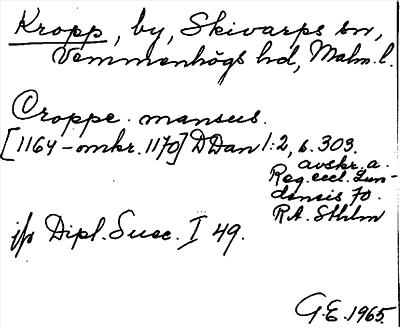 Kropp, by, Skivarps sn,
Vemmenhögs hd, Malm. l.
Croppe. mansus.
[1164-omkr. 1170] DDan 1:2, s. 303.
avskr. a.
Reg. eccl. Lun-
densis fo.
RA. Sthlm
jfr Dipl. Suec. I 49.
G.E. 1965.